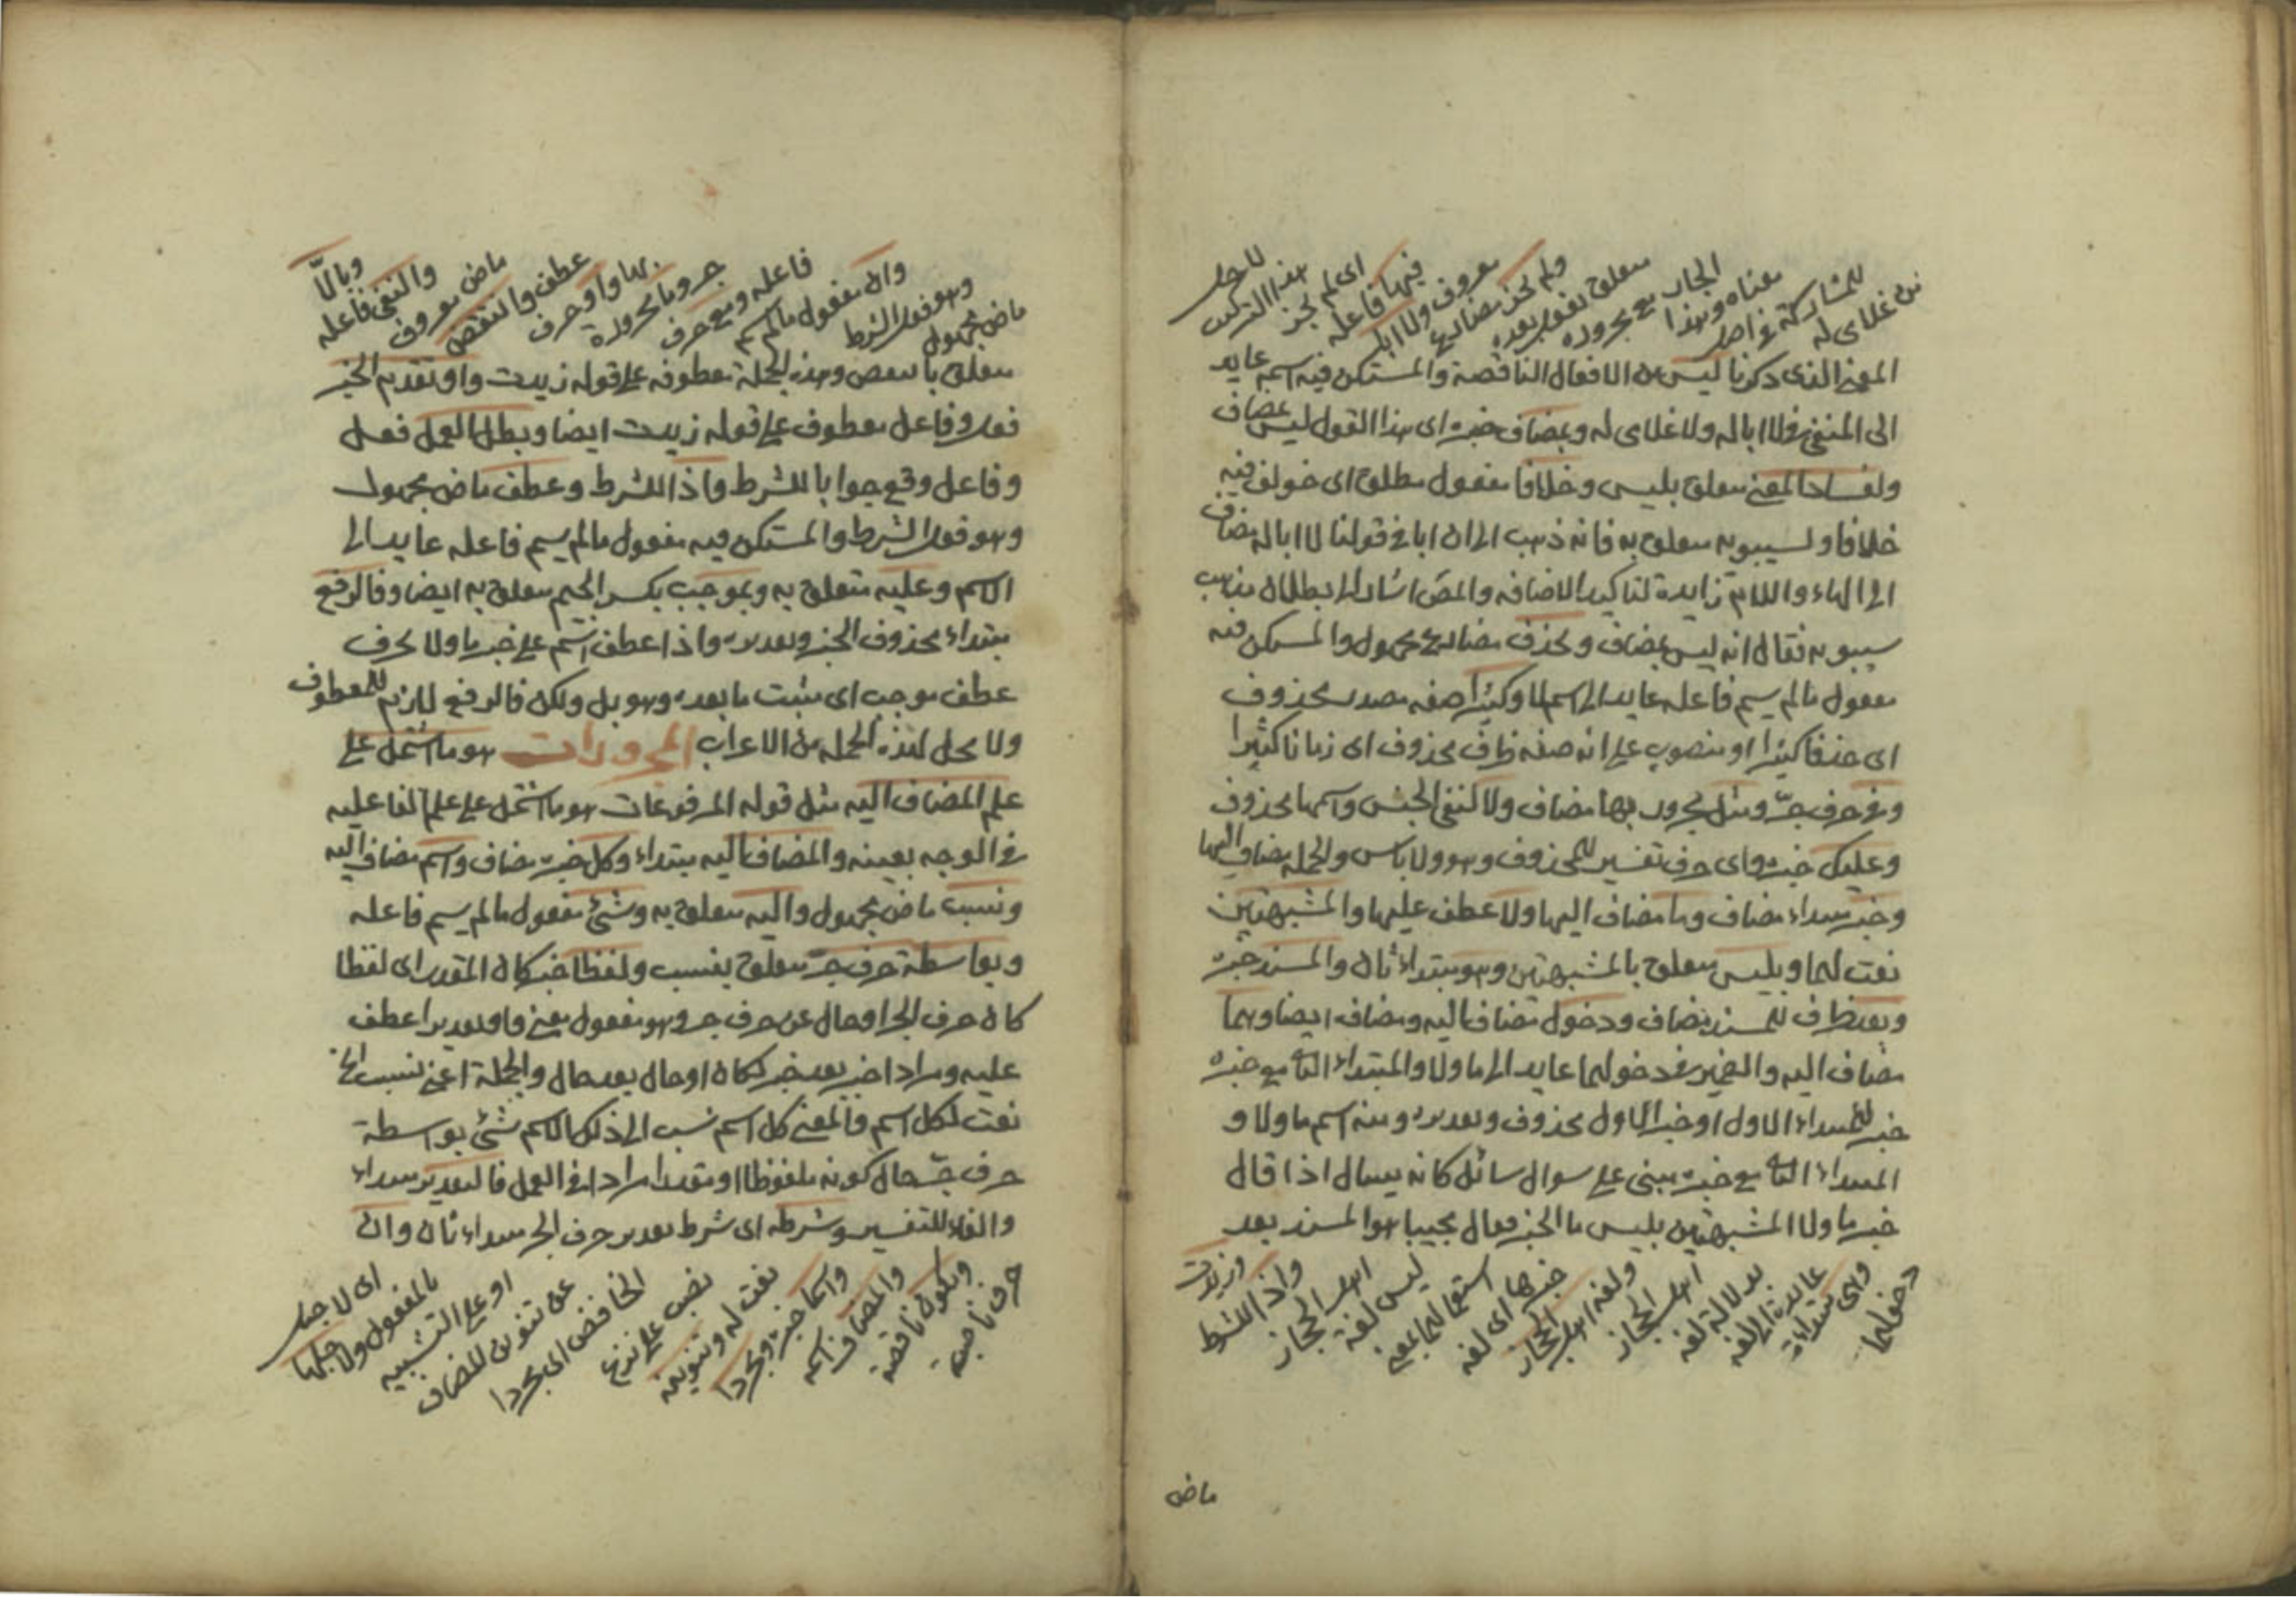 من غلامى له
للمشاركة فى اصل
معناه وبهذا
الجار مع مجروره
متعلق بقوله بعده
ولم يجز مضارع
معروف ولا ابا
فيها فاعله
اى لم يجز
هذا التركيب
لاجل
المعنى الذى ذكرنا ليس من الافعال الناقصة والمستكن فيه اسمه عايد
الى المنفى فى لا ابا له ولا غلامى له وبمضاف خبره اى هذا القول ليس بمضاف
ولفساد المعنى متعلق بليس وخلافا مفعول مطلق اى خولف فيه
خلافا ولسيبويه متعلق به فانه ذهب الى ان ابا فى قولنا لا ابا له مضاف
الى الهاء واللام زايدة لتاكيد الاضافه والمص اشار الى ابطلان مذهب
سيبويه فقال انه ليس بمضاف ويحذف مضارع مجهول والمستكن فيه
مفعول مالم يسم فاعله عايد الى اسم لا وكثيرا صفه مصدر محذوف
اى حذفا كثيرا او منصوب على انه صفه ظرف محذوف اى زمانا كثيرا
وفى حرف جرّ ومثل مجرور بها مضاف ولا لنفى الجنس واسمها محذوف
وعليك خبره واى حرف تفسير للمحذوف وهو ولا باس والجمله مضاف اليها
وخبر مبتداء مضاف وما مضاف اليها ولا عطف عليها والمشبهتين
نعت لهما وبليس متعلق بالمشبهتين وهو مبتداء ثان والمسند خبره
وبعد ظرف للمسند مضاف ودخول مضاف اليه ومضاف ايضا وهما
مضاف اليه والضمير فى دخولهما عايد الى ما ولا والمبتداء الثانى مع خبره
خبر للمبتداء الاول او خبر الاول محذوف وتقديره ومنه اسم ما ولا و
المبتداء الثانى مع خبره مبنى على سوال سائل كانه يسال اذا قال
خبر ما ولا المشبهتين بليس ما الخبر فقال مجيبا هو المسند بعد
دخولهما
وهى مبتداءة
عايدة الى لغه
بدلالة لغه
اهل الحجاز
ولغه اهل الحجاز
خبرها اى لغه
استعمالهما بمعنى
ليس لغة
اهل الحجاز
واذا للشرط
وزيدت
ماض
ماض مجهول
وهو فعل الشرط
وان مفعول مالم يسم
فاعله ومع حرف
جر وما مجرورة
بها واو حرف
عطف وانتقض
ماض معروف
والنفى فاعله
وبالّا
متعلق بانتقض وهذه الجملة معطوفه على قوله زيدت واو تقدم الخبر
فعل وفاعل معطوف على قوله زيدت ايضا وبطل العمل فعل
وفاعل وقع جوابا للشرط واذا للشرط وعطف ماض مجهول
وهو فعل الشرط والمستكن فيه مفعول مالم يسم فاعله عايد الى
الاسم وعليه متعلق به وبموجب بكسر الجيم متعلق به ايضا وفالرفع
مبتداء محذوف الخبر وتقديره واذا عطف اسم على خبر ما ولا بحرف
عطف موجب اى مثبت ما بعده وهو بل ولكن فالرفع لازم للمعطوف
ولا محل لهذه الجمله من الاعراب المجرورات هو ما اشتمل على
علم المضاف اليه مثل قوله المرفوعات هو ما اشتمل على علم الفاعليه
فى الوجه بعينه والمضاف اليه مبتداء وكل خبره مضاف واسم مضاف اليه
ونسب ماض مجهول واليه متعلق به وشئ مفعول مالم يسم فاعله
وبواسطة حرف جرّ متعلق بنسب ولفظا خبر كان المقدر اى لفظا
كان حرف الجر او حال عن حرف جر وهو مفعول معنى واو تقديرا عطف
عليه ومرادا خبر بعد خبر لكان او حال بعد حال والجملة اعنى نسب الخ
نعت لكل اسم فالمعنى كل اسم نسب الى ذلك الاسم شئ بواسطة
حرف جرّ حال كونه ملفوظا او مقدرا مرادا فى العمل فالتقدير مبتداء
والفاء للتفسير وشرطه اى شرط تقدير حرف الجر مبتداء ثان وان
حرف ناصبة
ويكون ناقصة
والمضاف اسمه
واسما خبره ومجردا
نعت له وتنوينه
نصب على نزع
الخافض اى مجردا
عن تنوين المضاف
او على التشبيه
بالمفعول ولاجلها
اى لاجل